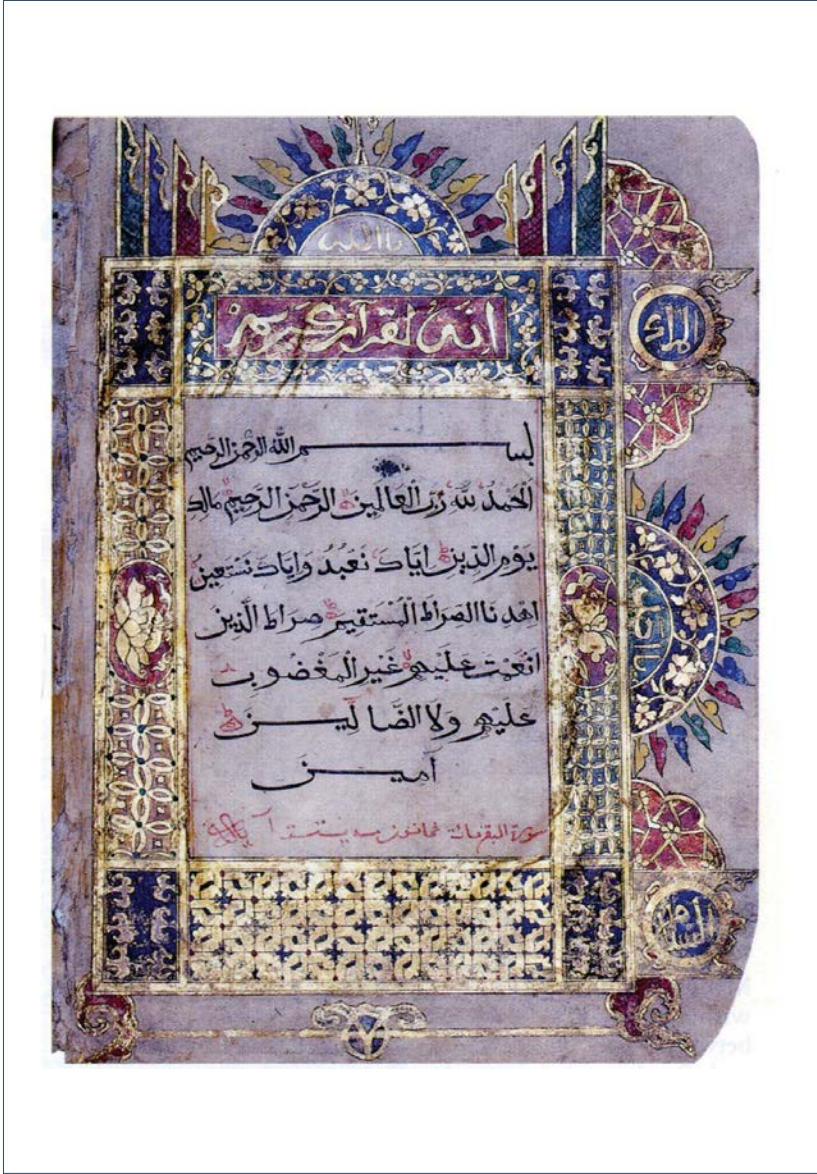 يا الله
إنه لقرآن كريم
الملك
بسم الله الرحمن الرحيم
الحمد لله رب العالمين الرحمن الرحيم مالك
يوم الدين اياك نعبد واياك نستعين
اهدنا الصراط المستقيم صراط الذين
انعمت عليهم غير المغضوب
عليهم ولا الضالين
آمين
سورة البقرة مائة ثمانون آية
السلام